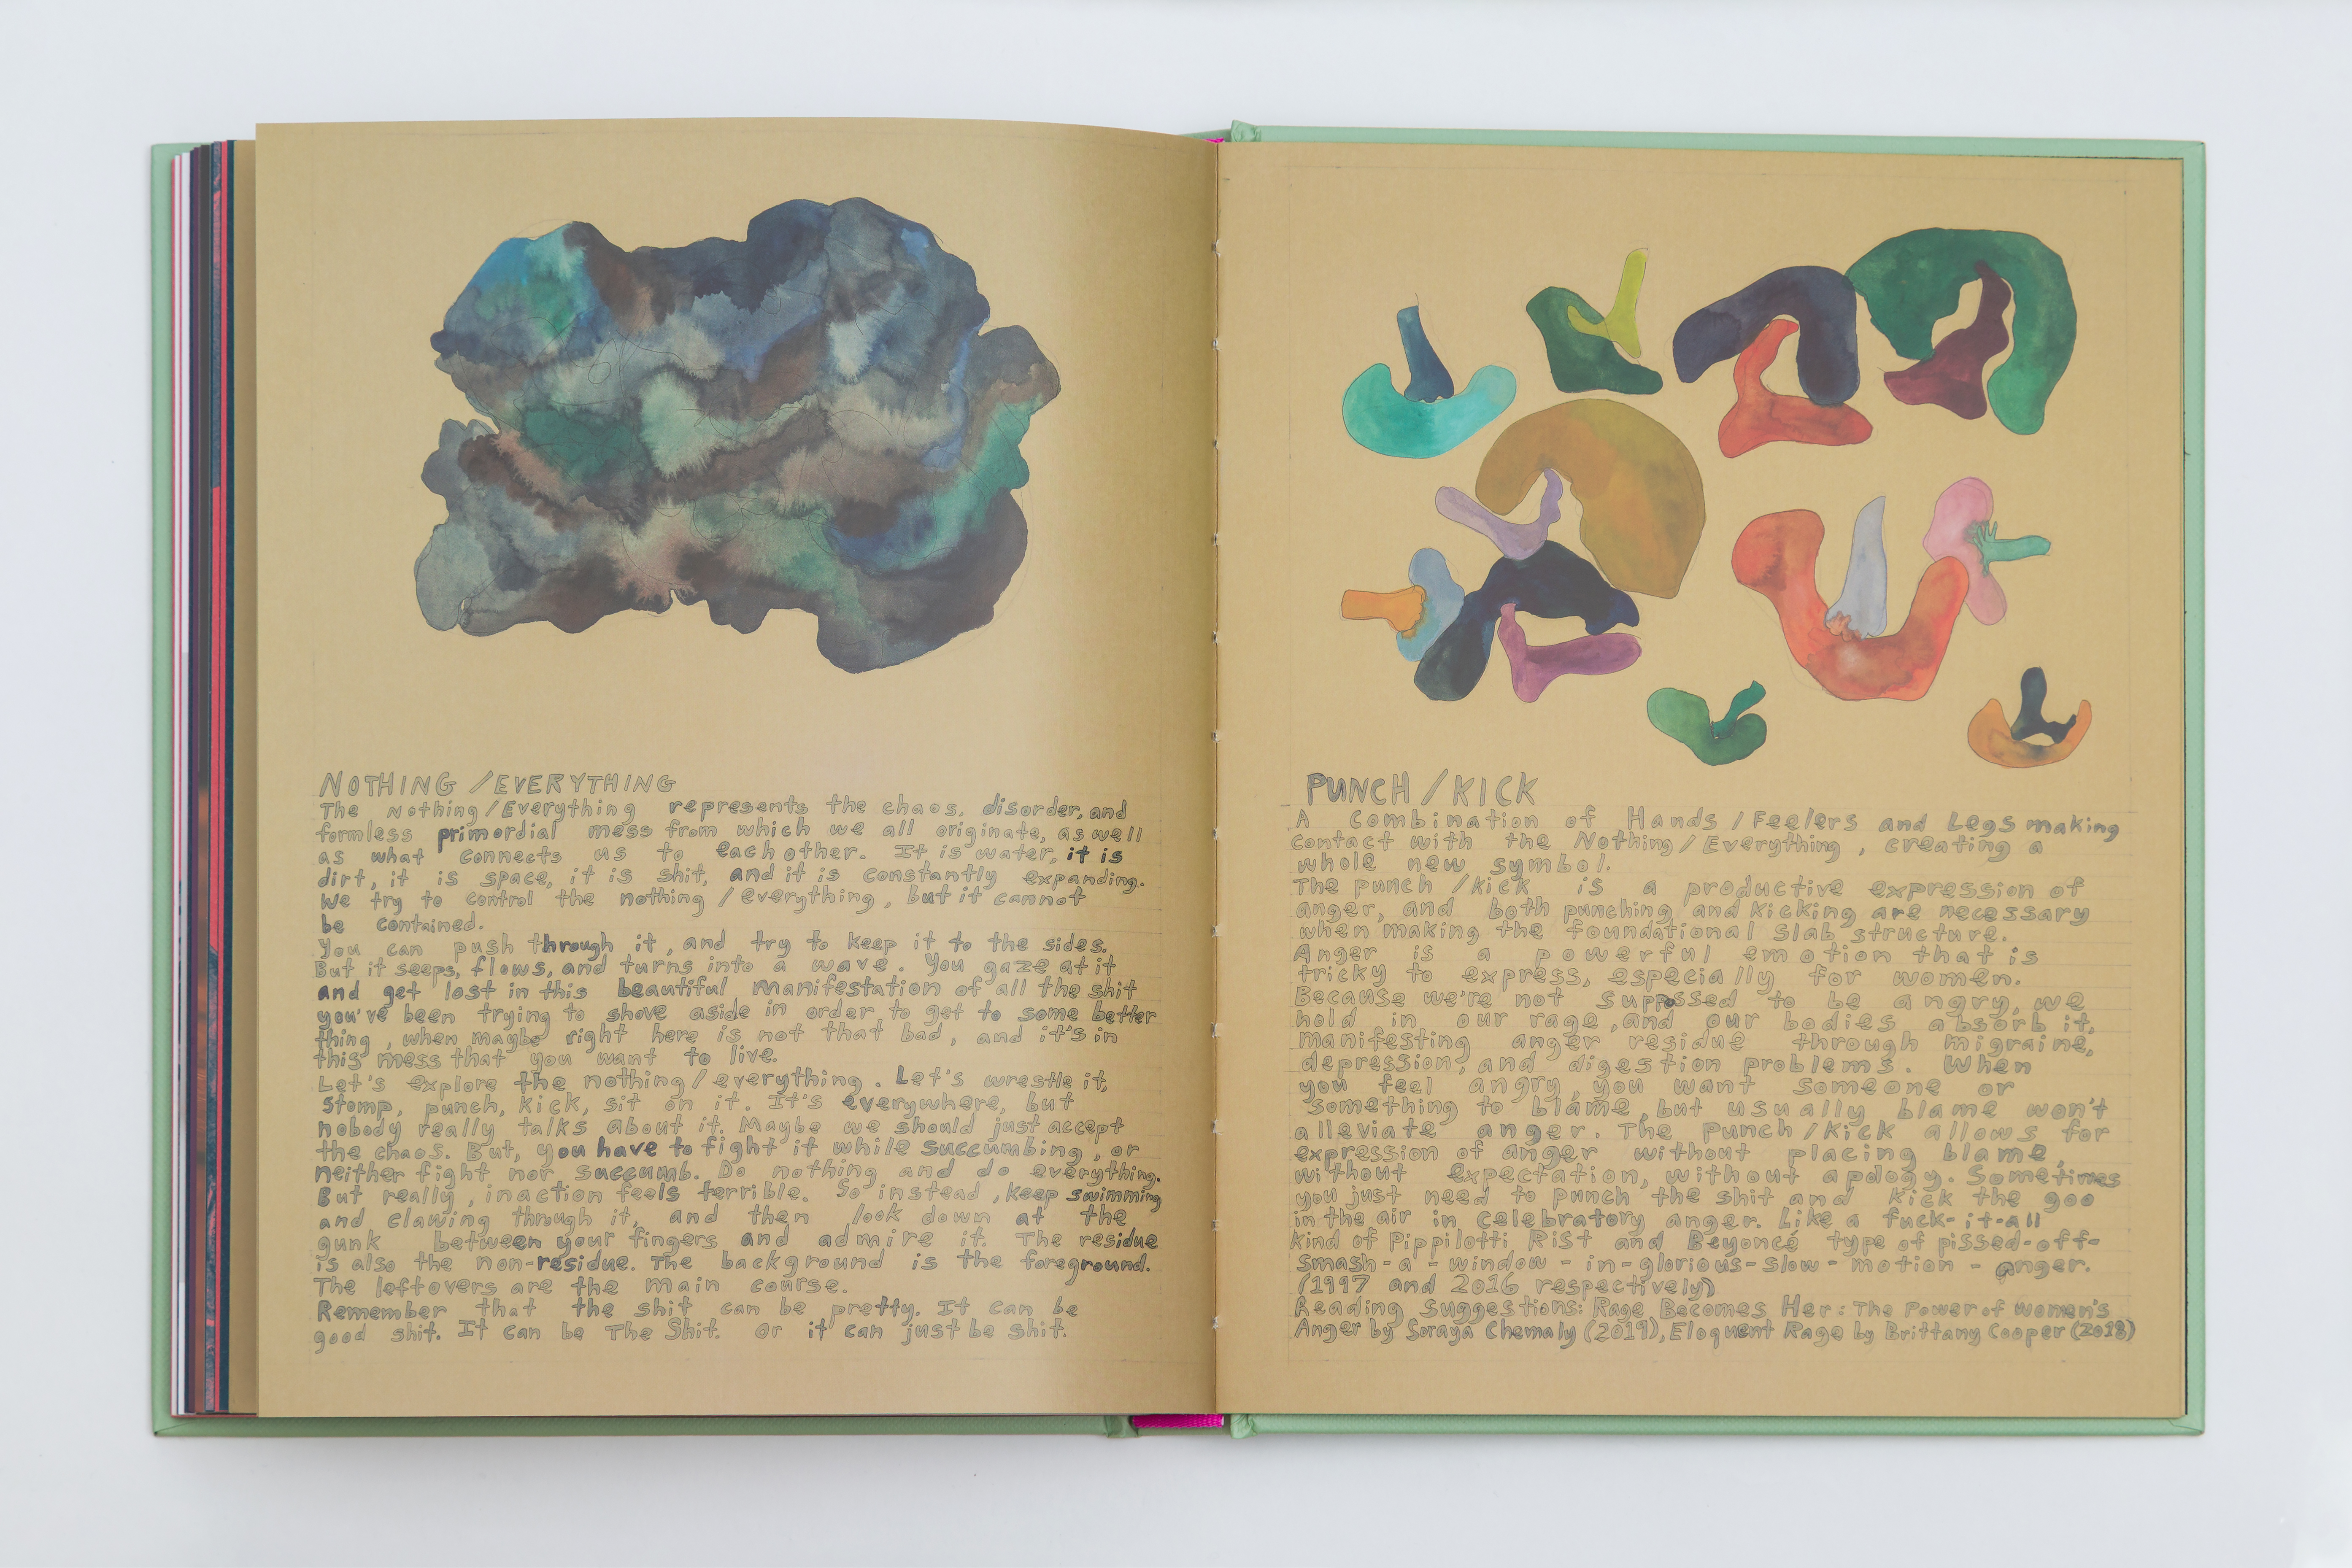 NOTHING /EVERYTHING
The Nothing/Everything represents the chaos, disorder, and
formless primordial mess from which we all originate, as well
as what connects us to each other. It is water, it is
dirt, it is space, it is shit, and it is constantly expanding.
We try to control the nothing/everything, but it cannot
be contained.
You can push through it, and try to keep it to the sides.
But it seeps, flows, and turns into a wave. You gaze at it
and get lost in this beautiful manifestation of all the shit
you've been trying to shove aside in order to get to some better
thing, when maybe right here is not that bad, and it's in
this mess that you want to live.
Let's explore the nothing/everything. Let's wrestle it,
stomp, punch, kick, sit on it. It's everywhere, but
nobody really talks about it. Maybe we should just accept
the chaos. But, you have to fight it while succumbing, or
neither fight nor succumb. Do nothing and do everything.
But really, inaction feels terrible. So instead, keep swimming
and clawing through it, and then look down at the
gunk between your fingers and admire it. The residue
is also the non-residue. The background is the foreground.
The leftovers are the main course.
Remember that the shit can be pretty. It can be
good shit. It can be The Shit. Or it can just be shit.
PUNCH/KICK
A Combination of Hands/Feelers and Legs making
contact with the Nothing/Everything, creating a
whole new symbol.
The punch/kick is a productive expression of
anger, and both punching and kicking are necessary
when making the foundational slab structure.
Anger is a powerful emotion that is
tricky to express, especially for women.
Because we're not suppossed to be angry, we
hold in our rage, and our bodies absorb it,
manifesting anger residue through migraine,
depression, and digestion problems. When
you feel angry, you want someone or
something to blame, but usually blame won't
alleviate anger. The Punch/Kick allows for
expression of anger without placing blame,
without expectation, without apology. Sometimes
you just need to punch the shit and kick the goo
in the air in celebratory anger. Like a fuck-it-all
kind of Pippilotti Rist and Beyoncé type of pissed-off-
smash-a-window-in-glorious-slow-motion-anger.
(1997 and 2016 respectively)
Reading Suggestions: Rage Becomes Her: The Power of Women's
Anger by Soraya Chemaly (2019), Eloquent Rage by Brittany Cooper (2018)